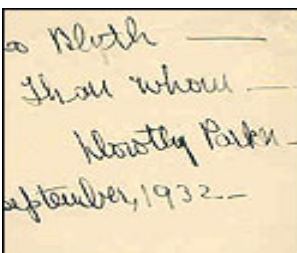 to Blyth —
Than whom —
Dorothy Parker —
September, 1932 —